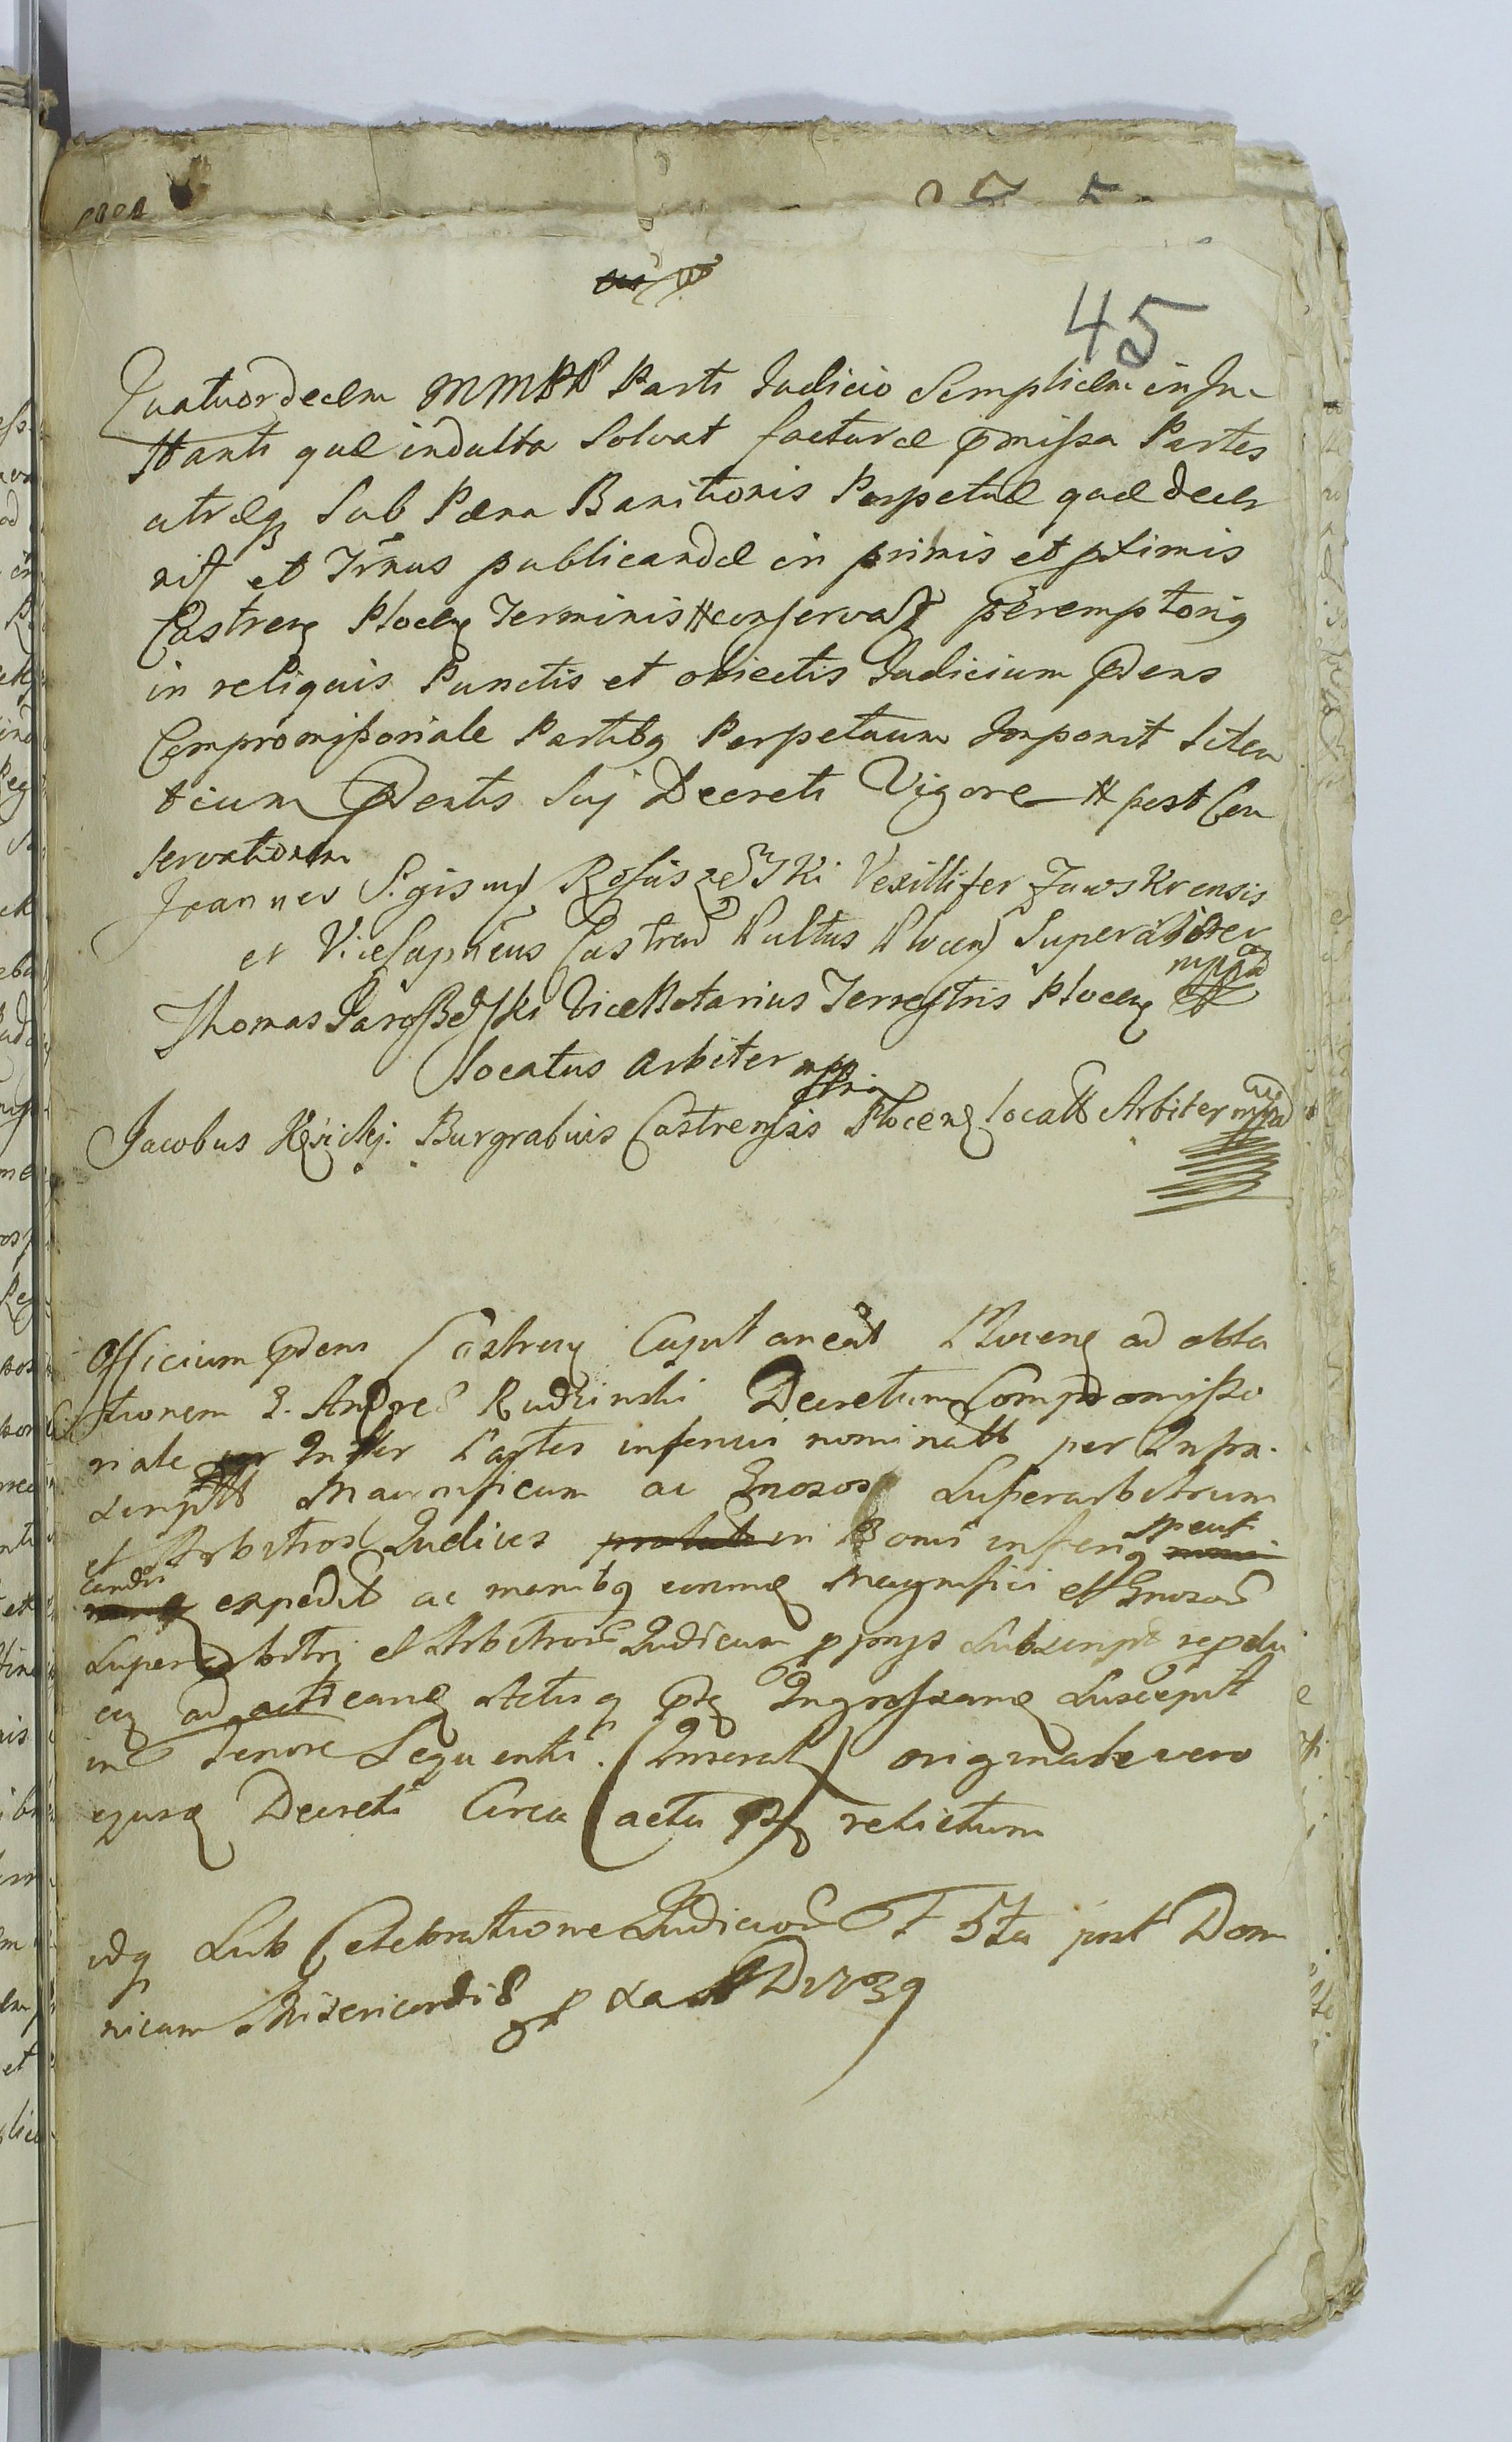 45
Quatuordecem MMPP Parti Iudicio Simplicem in Ju
stanti quae indulta Solvat facturae pmissa Partes
utraeq Sub Paena Banitionis Perpetuae quae decer
nit et Trnus publicandae in primis et pximis
Castren Plocen Terminis # conservat peremptoriq
in reliquis Punctis et obiectis Iudicium pdens
Compromissoriale Partibq Perpetuum Imponit Silen
tium pdentis Suj Decreti Vigore # post Con
servationem
Joannes Sigism Vexillifer Zawskrensis
et Vicesapneus Castren Pultus Plocen Superarbiter
mppa
Thomas ViceNotarius Terrestris Plocen
locatus Arbiter mppria
Jacobus Burgrabius Castrensis Plocen locatt Arbiter mppa
Officium pdens Castren Capitaneat Plocens ad obla
tionem G. Andreae Rudzinski Decretum Compromisso
riale Inter Partes inferius nominatt per Infra
script Magnificum ac Gnosos Superarbitrum
et Arbitros Iudices in Bonis inferiq specif
candis expedit ac manibq eorunq Magnifici et Gnosor
Superarbitrj et Arbitror Iudicum pprijs Subscript
ad acticanq Actisq Ingrossanq Suscepit
in Tenore Sequenti. (Inserat) originale vero
ejusq Decreti Circa acta relictum
idq Sub Celebratione Iudicior F 5ta post Dom
nicam Misericordiae pxa AD 1739